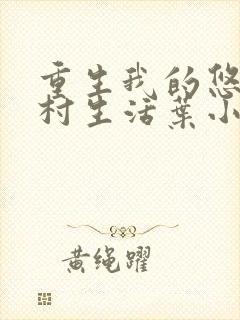 重生我的悠
村生活葉小
黄绳躍